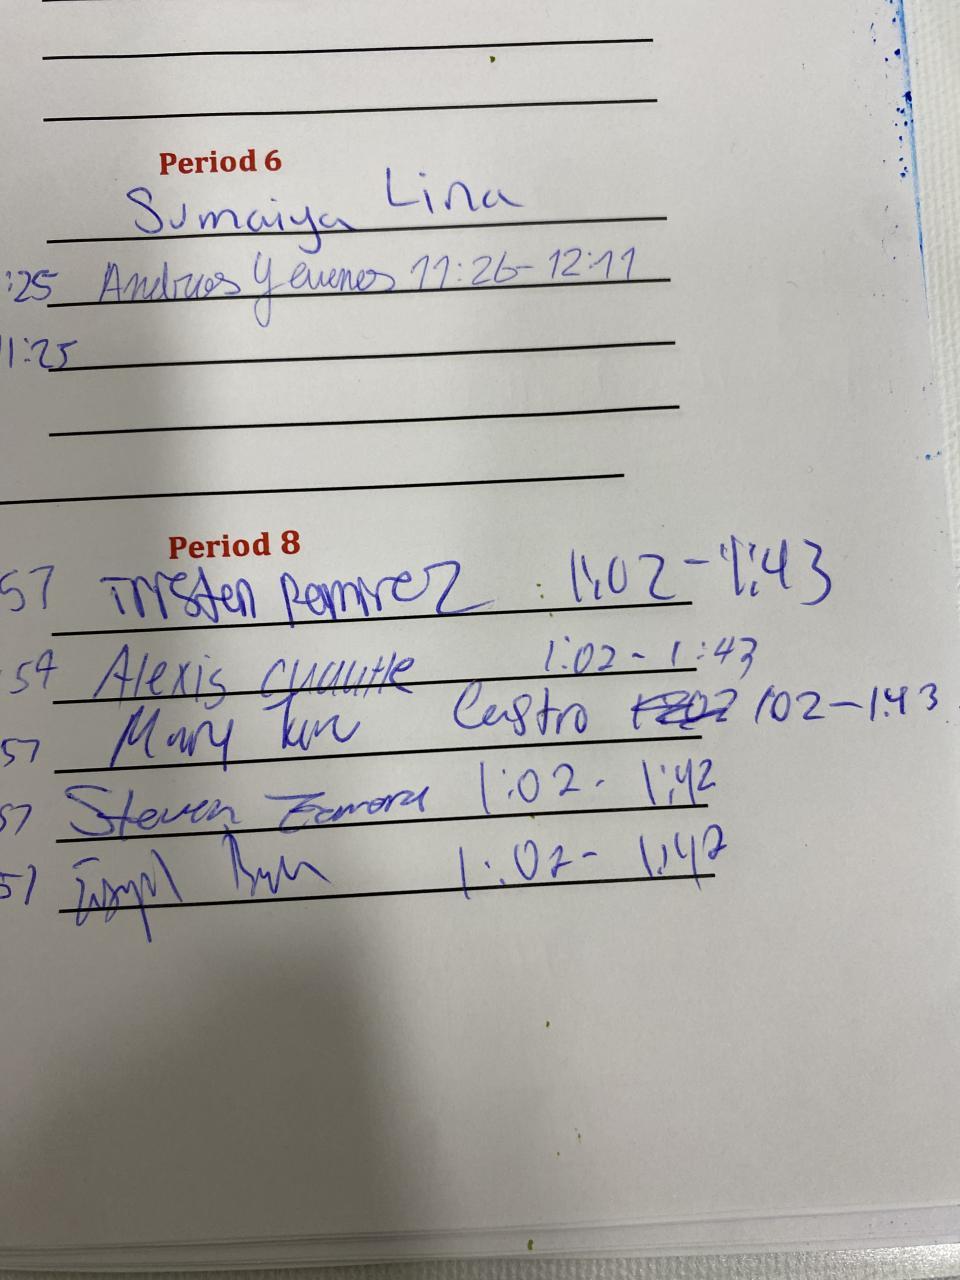 Period 6
Sumaiya Lina
:25 Andres 11:26-12:11
1:25
Period 8
57 Tristen Ramirez 1:02-1:43
54 Alexis cuautle 1:02-1:43
57 Mary Castro 102-1:43
57 Steven Zamora 1:02-1:42
57 1:02-1:42